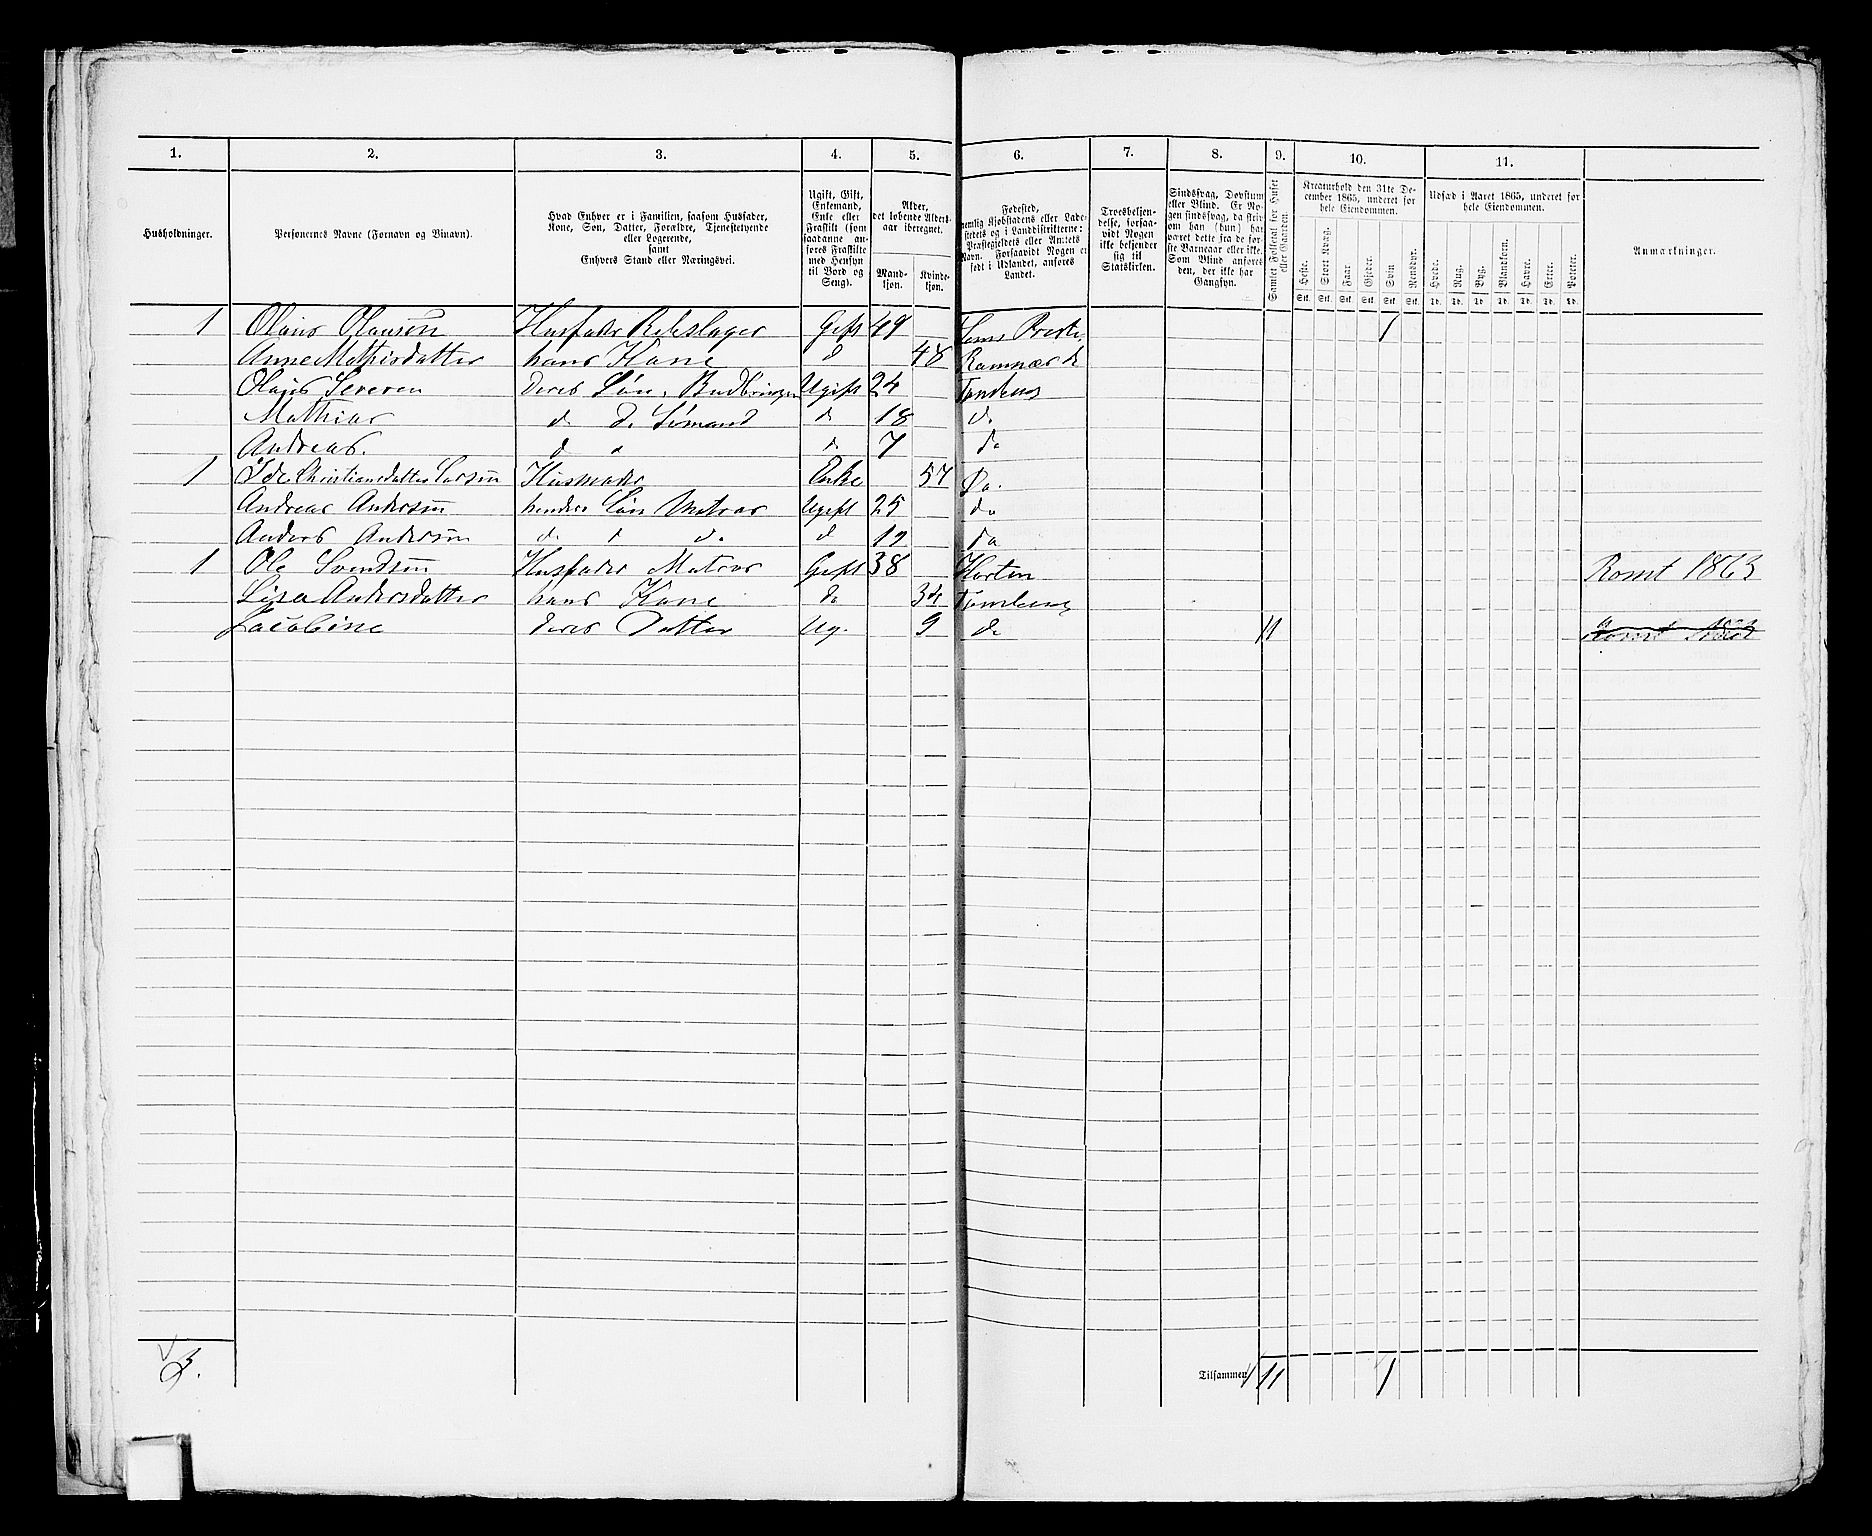 1. 2. 3. 4. 5. 6. 7. 8. 9. 10. 11.
Husholdninger.
Personernes Navne (Fornavn og Vinavn).
Hvad Enhver er i Familien, saasom Husfader,
Kone, Søn, Datter, Forældre, Tjenestetyende
eller Logerende,
samt
Enhvers Stand eller Næringsvei.
Ugift, Gift,
Enkemand,
Enke eller
Fraskilt (som
saadanne an-
føres Fraskilte
med Hensyn
til Bord og
Seng).
Alder,
det løbende Alders-
aar iberegnet.
Mand-
kjøn.
Kvinde-
kjøn.
Fødested,
nemlig Kjøbstadens eller Lade-
stedets og i Landdistrikterne:
Præstegjeldets eller Amtets
Navn. Forsaavidt Nogen er
født i Udlandet, anføres
Landet.
Troesbekjen-
delse, forsaa-
vidt Nogen
ikke bekjender
sig til
Statskirken.
Sindssvag, Døvstum
eller Blind. Er No-
gen sindssvag, da skriv
om han (hun) har
været dette fra de før-
ste Barneaar eller ikke.
Som Blind anføres
den, der ikke har
Gangsyn.
Samlet Folketal for Huset
eller Gaarden.
Kreaturhold den 31te De-
cember 1865, underet for
hele Eiendommen.
Heste. Stort Kvæg. Faar Gjeder. Svin Rensdyr.
Stk. Stk. Stk. Stk. Stk. Stk.
Udsæd i Aaret 1865, underet for
hele Eiendommen.
Hvede. Rug. Byg. Blandkorn. Havre. Erter. Poteter.
Td. Td. Td. Td. Td. Td. Td.
Anmærkninger.
1 Olaus Olausen Husfader Rebslager Gift 49 Sems Preste. 1
Anne Mathisdatter hans Kone d 48 Ramnæs
Olaus Severin Deres Søn, Budbringer Ugift 24 Tønsberg
Mathias d. d. Sømand d 18 d.
Andreas. d d d. 7 do
1 Ide Christiansdatter Larsen Husmoder Enke 57 Do.
Andreas Andersen hendes Søn Matros Ugift 25 do
Anders Andersen d. d do d 19 da
1 Ole Svendsen Husfader Matros Gift 38 Horten Romt 1863
Lisa Andersdatter hans Kone do Tønsberg
Jacobine deres Datter Ug. 9 d. 11
3. Tilsammen 11 1